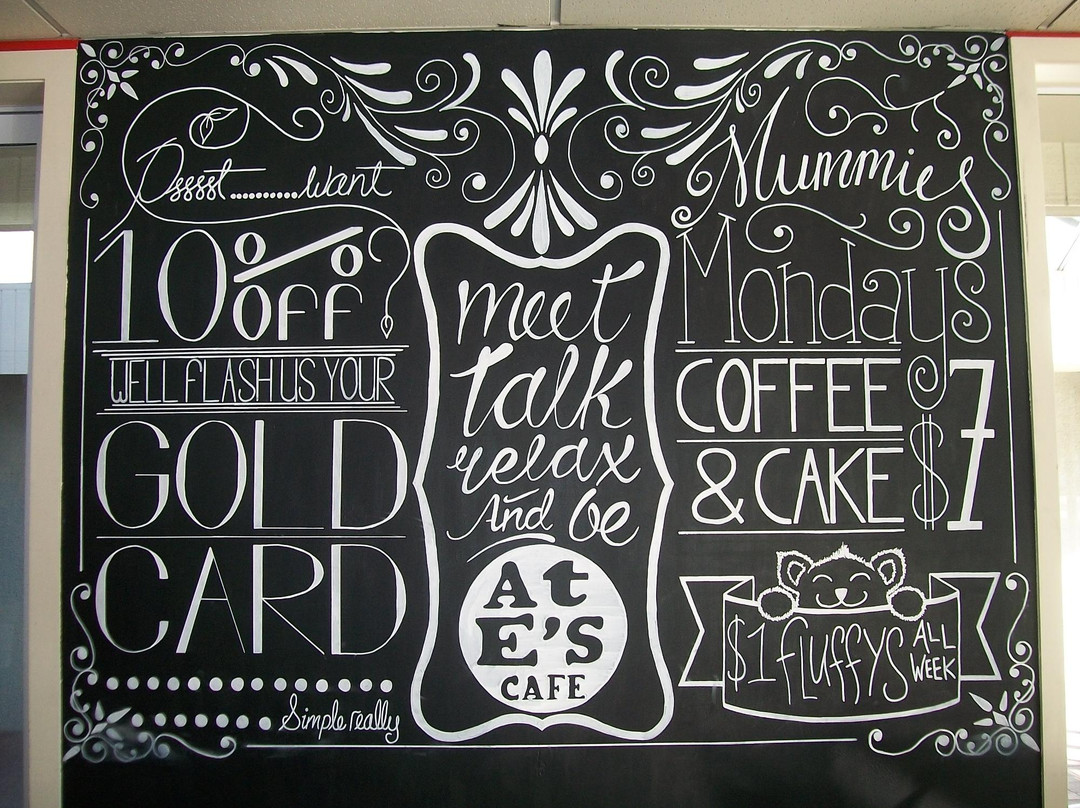 Psssst..........Want
10% OFF?
WELL FLASH US YOUR
GOLD
CARD
Simple really
meet
talk
relax
And be
At
E'S
CAFE
Mummies
Mondays
COFFEE
& CAKE
$7
$1 fluffys
ALL
WEEK